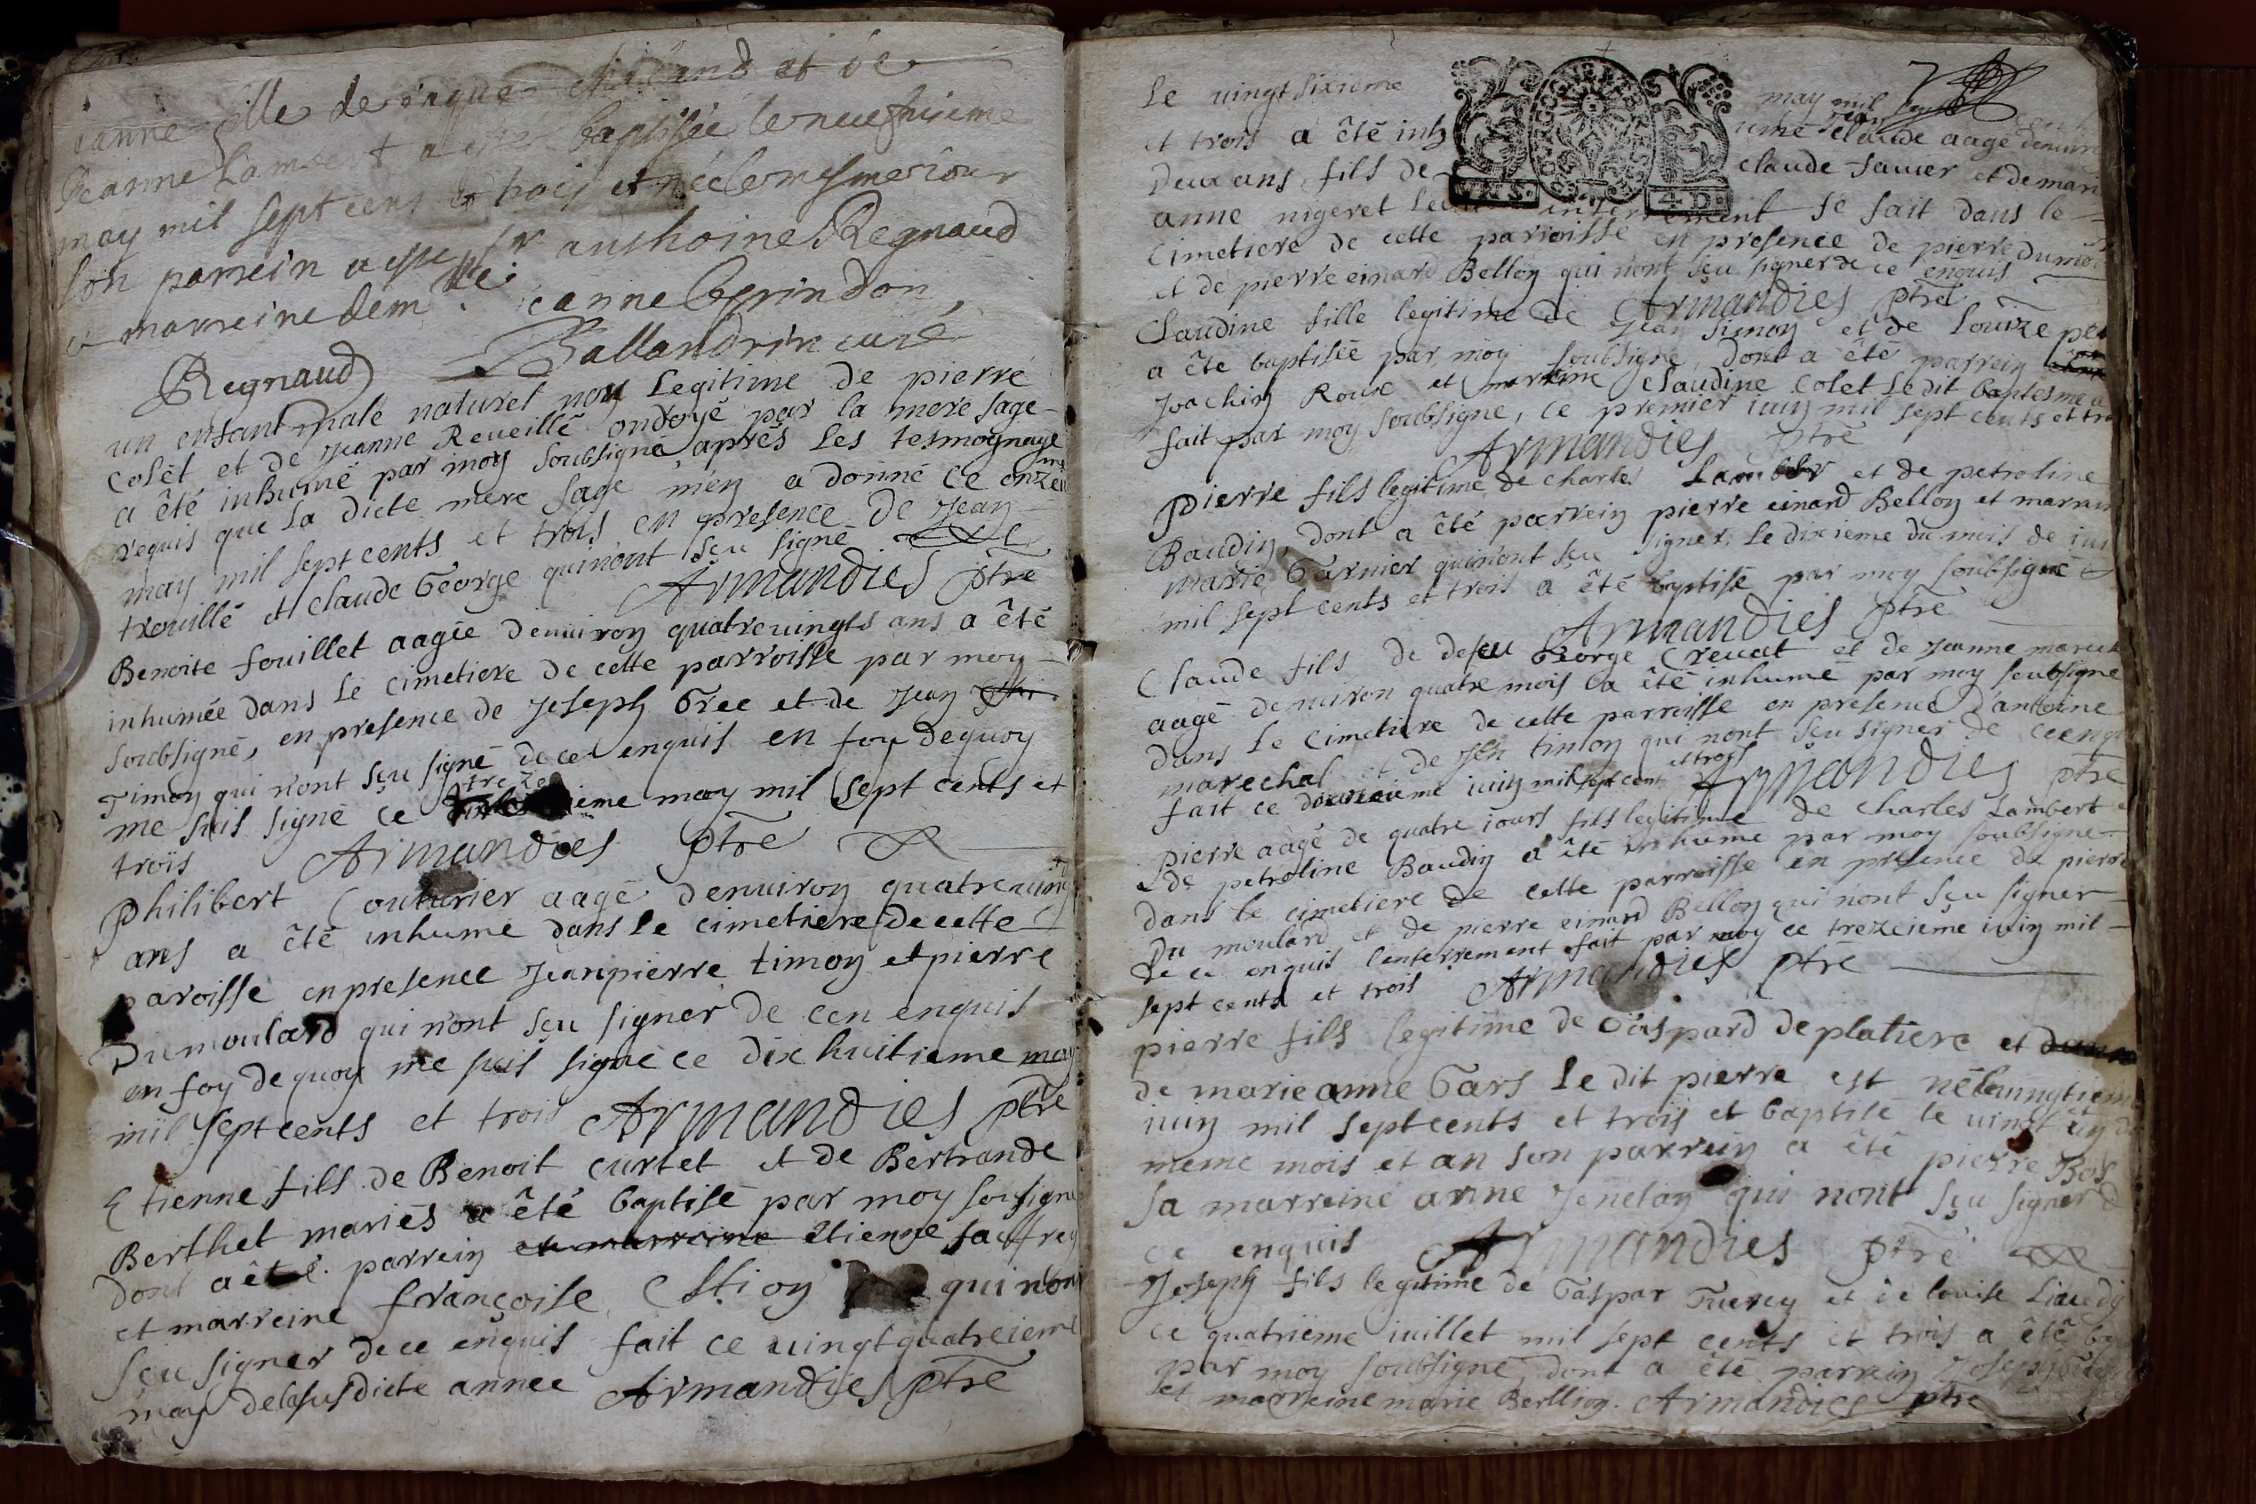 ianne fille de iaque et de
Jeanne Lambert a esté baptisée le neufuieme
may mil sept cens et trois et née le mesme iour
son parrein a esté Sr anthoine Regnaud
et marreine demlle ieanne Guerindon
Regnaud Ballandrin curé
un enfant male naturel non legitime de pierre
Colet et de Jeanne Reveillé ondoyé par la mere sage
a êté inhumé par moy soubsigné après les tesmoynages
requis que la dicte mere sage m'en a donné ce onzem
may mil sept cents et trois en presence de Jean
trouillé et Claude George qui n'ont sçu signé
Armandies ptre
Benoite fouillet aagée denuiron quatreuingts ans a êté
inhumée dans le cimetiere de cette parroisse par moy
soubsigné, en presence de Joseph Grec et de Jean
Timon qui n'ont sçu signé de ce enquis en foy dequoy
treze
me suis signé ce ieme may mil sept cents et
trois Armandies ptre
Philibert Couturier aagé denuiron quatreuingt
ans a êté inhumé dans le cimetiere de cette
paroisse en presence Jeanpierre timon et pierre
Dumoulard qui n'ont sçu signer de cen enquis
en foy dequoy me suis signé ce dix huitieme may
mil sept cents et trois Armandies ptre
Etienne fils de Benoit curtet et de Bertrande
Berthet mariés a êté baptisé par moy sousigné
dont a êté parrein et marreine Etienne sauffrey
et marreine françoise qui n'ont
sçu signer de ce enquis fait ce uingtquatreieme
may de la susdicte année Armandies ptre
Le uingt sixieme may mil sept cents
et trois a êté inh ume Jean Claude aagé denuiron
Deux ans, fils de claude Janier et de marie
anne nigeret Le dit interrement se fait dans le
Cimetiere de cette parroisse en presence de pierre dumou
et de pierre einard Bellon qui n'ont sçu signer de ce enquis
Armandies ptre
Claudine fille legitime de Jean Simon et de Louize
a êté baptisée par moy soubsigné, dont a êté parrein
Joachim Roux et marreine Claudine Colet Le dit baptesme a
fait par moy soubsigné, ce premier iuin mil sept cents et tro
Armandies ptre
Pierre fils legitime de Charle Lambert et de petroline
Baudin, dont a êté parrein pierre einard Bellon et marrein
marie Garnier qui n'ont sçu signer, Le dixieme du mois de iui
mil sept cents et trois a êté baptisé par moy soubsigné
Armandies ptre
Claude fils de defeu George Crevat et de Jeanne marech
aagé denuiron quatre mois a êté inhumé par moy soubsigné
dans Le cimetiere de cette parroisse en presence d'anthoine
marechal et de Jen timon qui n'ont sçu signer de ce enqu
et trois
fait ce douzieme iuin mil sept cent Armandies ptre
Pierre aagé de quatre iours fils legitime de Charles Lambert et
de petroline Baudin a êté inhumé par moy soubsigné
dans le cimetiere de cette parroisse en presence de pierre
Du moulard et de pierre einard Bellon qui n'ont sçu signer
de ce enquis l'enterrement fait par moy ce trezeieme iuin mil
sept cents et trois Armandies ptre
pierre fils legitime de Gaspard de platiere et
de marie anne Gars Le dit pierre est né le uingtieme
iuin mil sept cents et trois et baptisé le uingt et un du
meme mois et an son parrein a êté pierre Bos
sa marreine anne Jeneton qui n'ont sçu signer de
ce enquis Armandies ptre
Joseph fils legitime de Gaspar Guerey et de louise
ce quatrieme iuillet mil sept cents et trois a êté ba
par moy soubsigné, dont a êté parrein Joseph
et marreine marie Berllion. Armandies ptre